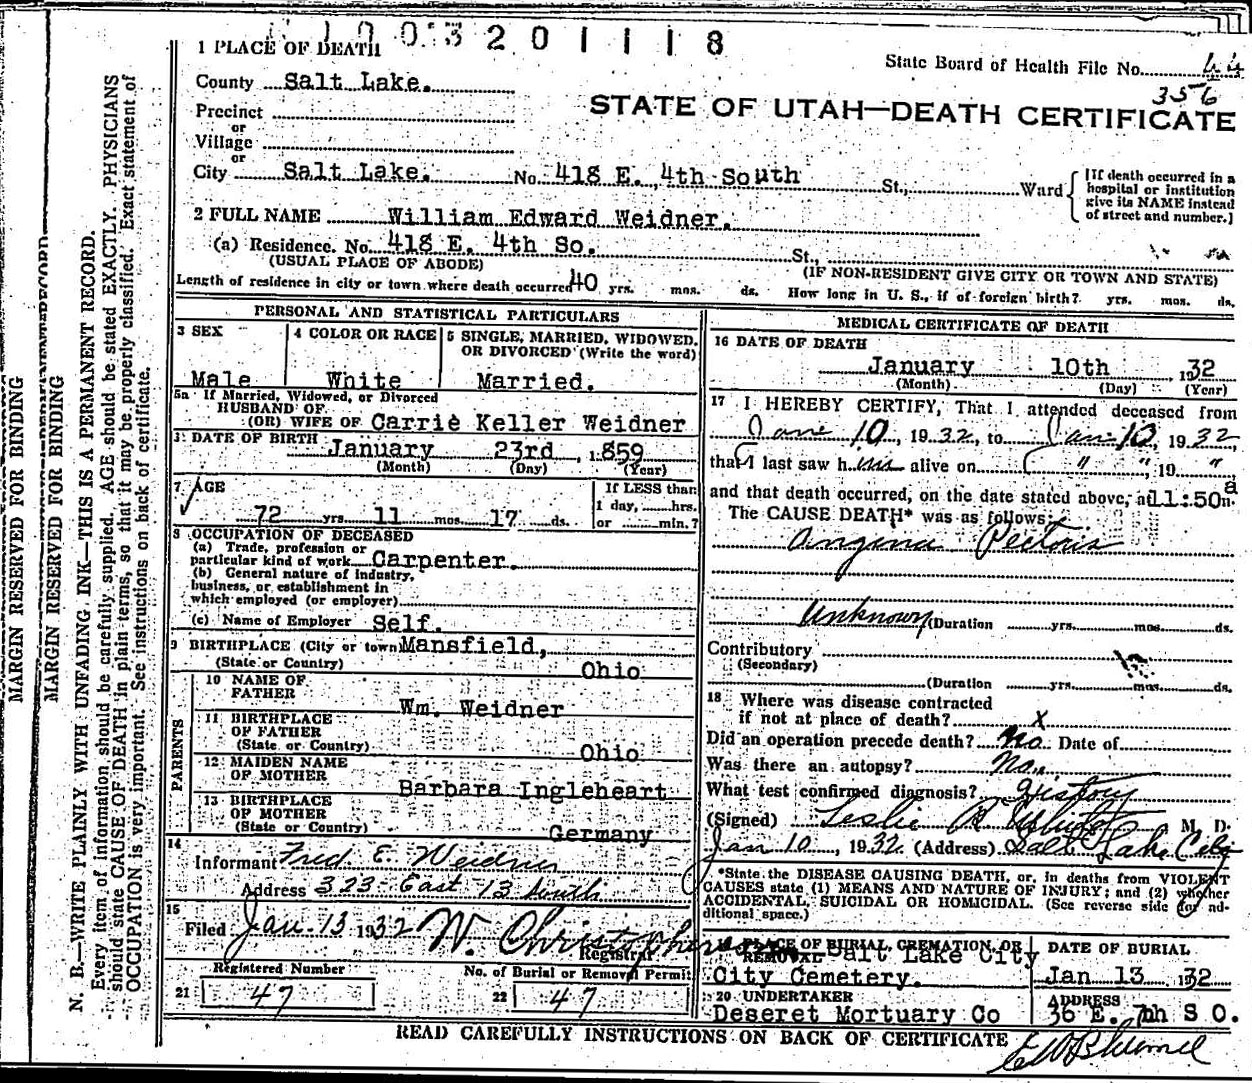 1 0 0 3 2 0 1 1 1 8
State Board of Health File No. 44
356
STATE OF UTAH—DEATH CERTIFICATE
1 PLACE OF DEATH
County Salt Lake.
Precinct
or
Village
or
City Salt Lake. No. 418 E. 4th South St., Ward
[If death occurred in a
hospital or institution
give its NAME instead
of street and number.]
2 FULL NAME William Edward Weidner.
(a) Residence. No. 418 E. 4th So. St.,
(USUAL PLACE OF ABODE) (IF NON-RESIDENT GIVE CITY OR TOWN AND STATE)
Length of residence in city or town where death occurred 40 yrs. mos. ds. How long in U. S., if of foreign birth? yrs. mos. ds.
PERSONAL AND STATISTICAL PARTICULARS
3 SEX
Male
4 COLOR OR RACE
White
5 SINGLE, MARRIED, WIDOWED,
OR DIVORCED (Write the word)
Married.
5a If Married, Widowed, or Divorced
HUSBAND OF
(OR) WIFE OF Carrie Keller Weidner
DATE OF BIRTH
January 23rd, 1859
(Month) (Day) (Year)
7 AGE
72 yrs. 11 mos. 17 ds.
If LESS than
1 day, hrs.
or min.?
8 OCCUPATION OF DECEASED
(a) Trade, profession or
particular kind of work Carpenter.
(b) General nature of industry,
business, or establishment in
which employed (or employer)
(c) Name of Employer Self.
9 BIRTHPLACE (City or town) Mansfield,
(State or Country) Ohio
PARENTS
10 NAME OF
FATHER
Wm. Weidner
11 BIRTHPLACE
OF FATHER
(State or Country) Ohio
12 MAIDEN NAME
OF MOTHER
Barbara Ingleheart
13 BIRTHPLACE
OF MOTHER
(State or Country) Germany
14
Informant Fred E. Weidner
Address 323 East 13 South
15
Filed Jan. 13 1932 W. Christopherson
Registrar
Registered Number
21 47
No. of Burial or Removal Permit
22 47
MEDICAL CERTIFICATE OF DEATH
16 DATE OF DEATH
January 10th 1932
(Month) (Day) (Year)
17 I HEREBY CERTIFY, That I attended deceased from
Jan 10, 1932, to Jan 10, 1932,
that I last saw him alive on " ", 19 "
and that death occurred, on the date stated above, at 11:50 a m.
The CAUSE DEATH* was as follows:
Angina Pectoris
Unknown (Duration yrs. mos. ds.
Contributory
(Secondary)
(Duration yrs. mos. ds.
18 Where was disease contracted
if not at place of death? X
Did an operation precede death? No Date of
Was there an autopsy? No.
What test confirmed diagnosis? History
(Signed) Leslie M. D.
Jan 10, 1932 (Address) Salt Lake City
*State the DISEASE CAUSING DEATH, or, in deaths from VIOLENT
CAUSES state (1) MEANS AND NATURE OF INJURY; and (2) whether
ACCIDENTAL, SUICIDAL OR HOMICIDAL. (See reverse side for ad-
ditional space.)
PLACE OF BURIAL, CREMATION, OR
REMOVAL Salt Lake City
City Cemetery.
DATE OF BURIAL
Jan 13 1932
20 UNDERTAKER
Deseret Mortuary Co
ADDRESS
36 E. 7th S O.
READ CAREFULLY INSTRUCTIONS ON BACK OF CERTIFICATE
MARGIN RESERVED FOR BINDING
MARGIN RESERVED FOR BINDING
N. B.—WRITE PLAINLY WITH UNFADING INK—THIS IS A PERMANENT RECORD.
Every item of information should be carefully supplied. AGE should be stated EXACTLY. PHYSICIANS
should state CAUSE OF DEATH in plain terms, so that it may be properly classified. Exact statement of
OCCUPATION is very important. See instructions on back of certificate.